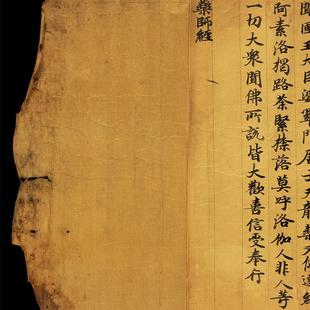 聞國王大臣婆羅門居士天龍藥叉健達縛
阿素洛揭路荼緊捺落莫呼洛伽人非人等
一切大衆聞佛所說皆大歡喜信受奉行
藥師經